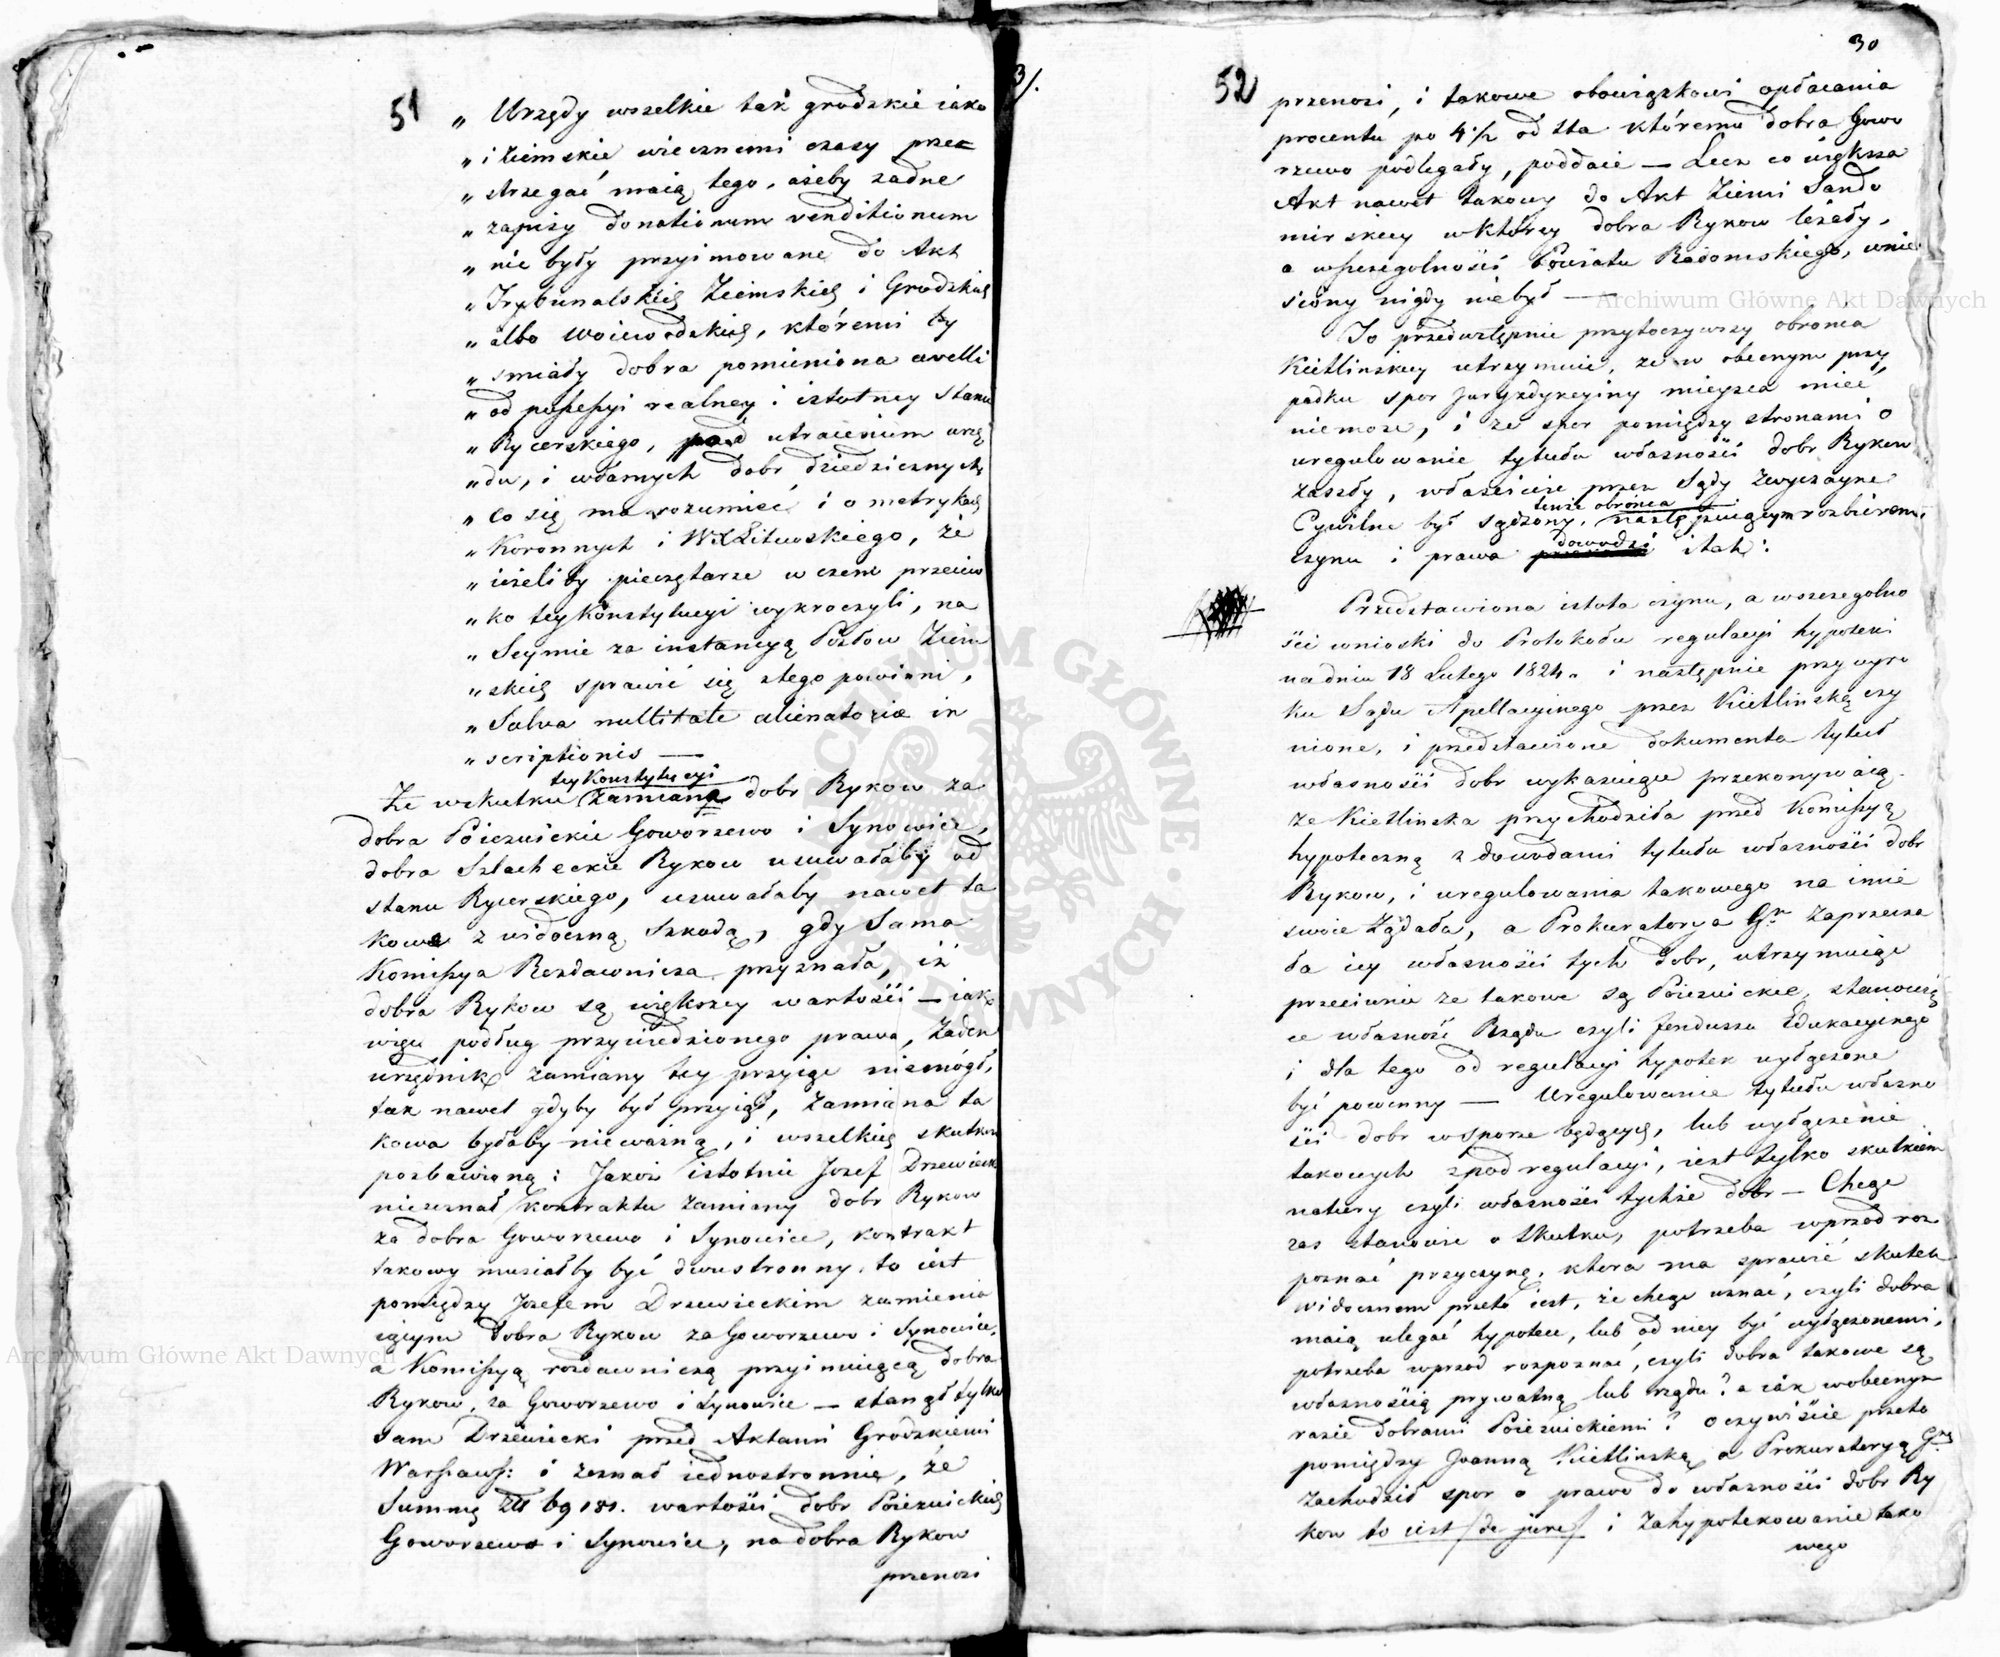 51
„ Urzędy wszelkie tak grodzkie iako
„ i ziemskie wiecznemi czasy prze=
„ strzegać maią tego, ażeby żadne
„ zapisy donationum venditionum
„ nie były przyimowane do Akt
„ Trybunalskich Ziemskich i Grodzkich
„ albo Woiewodzkich, któremi by
„ smiały dobra pomienione avelli
„ od possessyi realney i istotney Stanu
„ Rycerskiego, pod utraceniem urzę
„ du, i własnych dobr dziedzicznych,
„ co się ma rozumieć i o metrykach
„ Koronnych i WXLitewskiego, że
„ ieżeliby pieczętarze w czem przeciw
„ ko tey Konstytucyi wykroczyli, na
„ Seymie za instancyą Posłow Ziem
„ skich sprawić się z tego powinni,
„ Salva nullitate alienatoriæ in
„ scriptionis —
tey Konstytucyi
Że wskutku zamiana dobr Rykow za
dobra Poiezuickie Goworzewo i Synowice,
dobra Szlacheckie Rykow usuwałaby od
stanu Rycerskiego, usuwałaby nawet ta
kowe z widoczną szkodą, gdy Sama
Komissya Rozdawnicza przyznała, iż
dobra Rykow są większey wartości — iak
więc podług przywiedzionego prawa, żaden
urzędnik zamiany tey przyiąć niemógł,
tak nawet gdyby był przyiął, zamiana ta
kowa byłaby nieważną, i wszelkich skutkow
pozbawioną: Jakoż istotnie Jozef Drzewieck
niezeznał kontraktu zamiany dobr Rykow
za dobra Goworzewo i Synowice, kontrakt
takowy musiałby być dwustronny, to iest
pomiędzy Jozefem Drzewieckim zamienia
iącym dobra Rykow za Goworzewo i Synowice,
a Komissyą rozdawniczą przyimuiącą dobra
Rykow, za Goworzewo i Synowice — stanął tylko
sam Drzewiecki przed Aktami Grodzkiemi
Warszaws: i zeznał iednostronnie, że
Summę Złł 69181. wartości dobr Poiezuickich
Goworzewo i Synowice, na dobra Rykow
przenosi
3/.
30
52
przenosi, i takowe obowiązkowi opłacania
procentu po 4½ od sta któremu dobra Gowo
rzewo podlegały, poddaie — Lecz co większa
Akt nawet takowy do Akt Ziemi Sando
mirskiey w którey dobra Rykow leżały,
a wszczegolności Powiatu Radomskiego, wnie
siony nigdy niebył —
To przedwstępnie przytoczywszy obronca
Kietlinskiey utrzymuie, że w obecnym przy
padku spor Juryzdykcyiny mieysca mieć
niemoże, i że spor pomiędzy stronami o
uregulowanie tytułu własności dobr Rykow
zaszły, właściwie przez Sądy zwyczayne
tenże obrońca
Cywilne być sądzony, następuiącym rozbiorem,
dowodzi
czynu i prawa i tak:
Przedstawiona istota czynu, a wszczegolno
ści wnioski do Protokołu regulacyi hypoteki
nadniu 18 Lutego 1824. i następnie przy wyro
ku Sądu Apellacyinego przez Kietlinską czy
nione, i przedstawione dokumenta tytuł
własności dobr wykazuiące przekonywaią
że Kietlinska przychodziła przed Komissyą
hypoteczną z dowodami tytułu własności dobr
Rykow, i uregulowania takowego na imie
swoie żądała, a Prokuratorya Gn zaprzecza
ła iey własności tych dobr, utrzymuiąc
przeciwnie że takowe są Poiezuickie, stanowią
ce własność Rządu czyli funduszu Edukacyinego
i dla tego od regulacyi hypotek wyłączone
być powinny — Uregulowanie tytułu własno
ści dobr w sporze będących, lub wyłączenie
takowych zpod regulacyi, iest tylko skutkiem
natury czyli własności tychże dobr — Chcąc
zas stanowić o skutku, potrzeba wprzod roz
poznać przyczynę, ktora ma sprawić skutek
widocznem przeto iest, że chcąc uznać, czyli dobra
maią ulegać hypotece, lub od niey być wyłączonemi,
potrzeba wprzod rozpoznać, czyli dobra takowe są
własnością prywatną lub rządu? a iak wobecnym
razie dobrami Poiezuickiemi? oczywiście przeto
pomiędzy Joanną Kietlinską a Prokuratoryą Gną
zachodził spor o prawo do własności dobr Ry
kow to iest /de jure/ i zahypotekowanie tako
wego